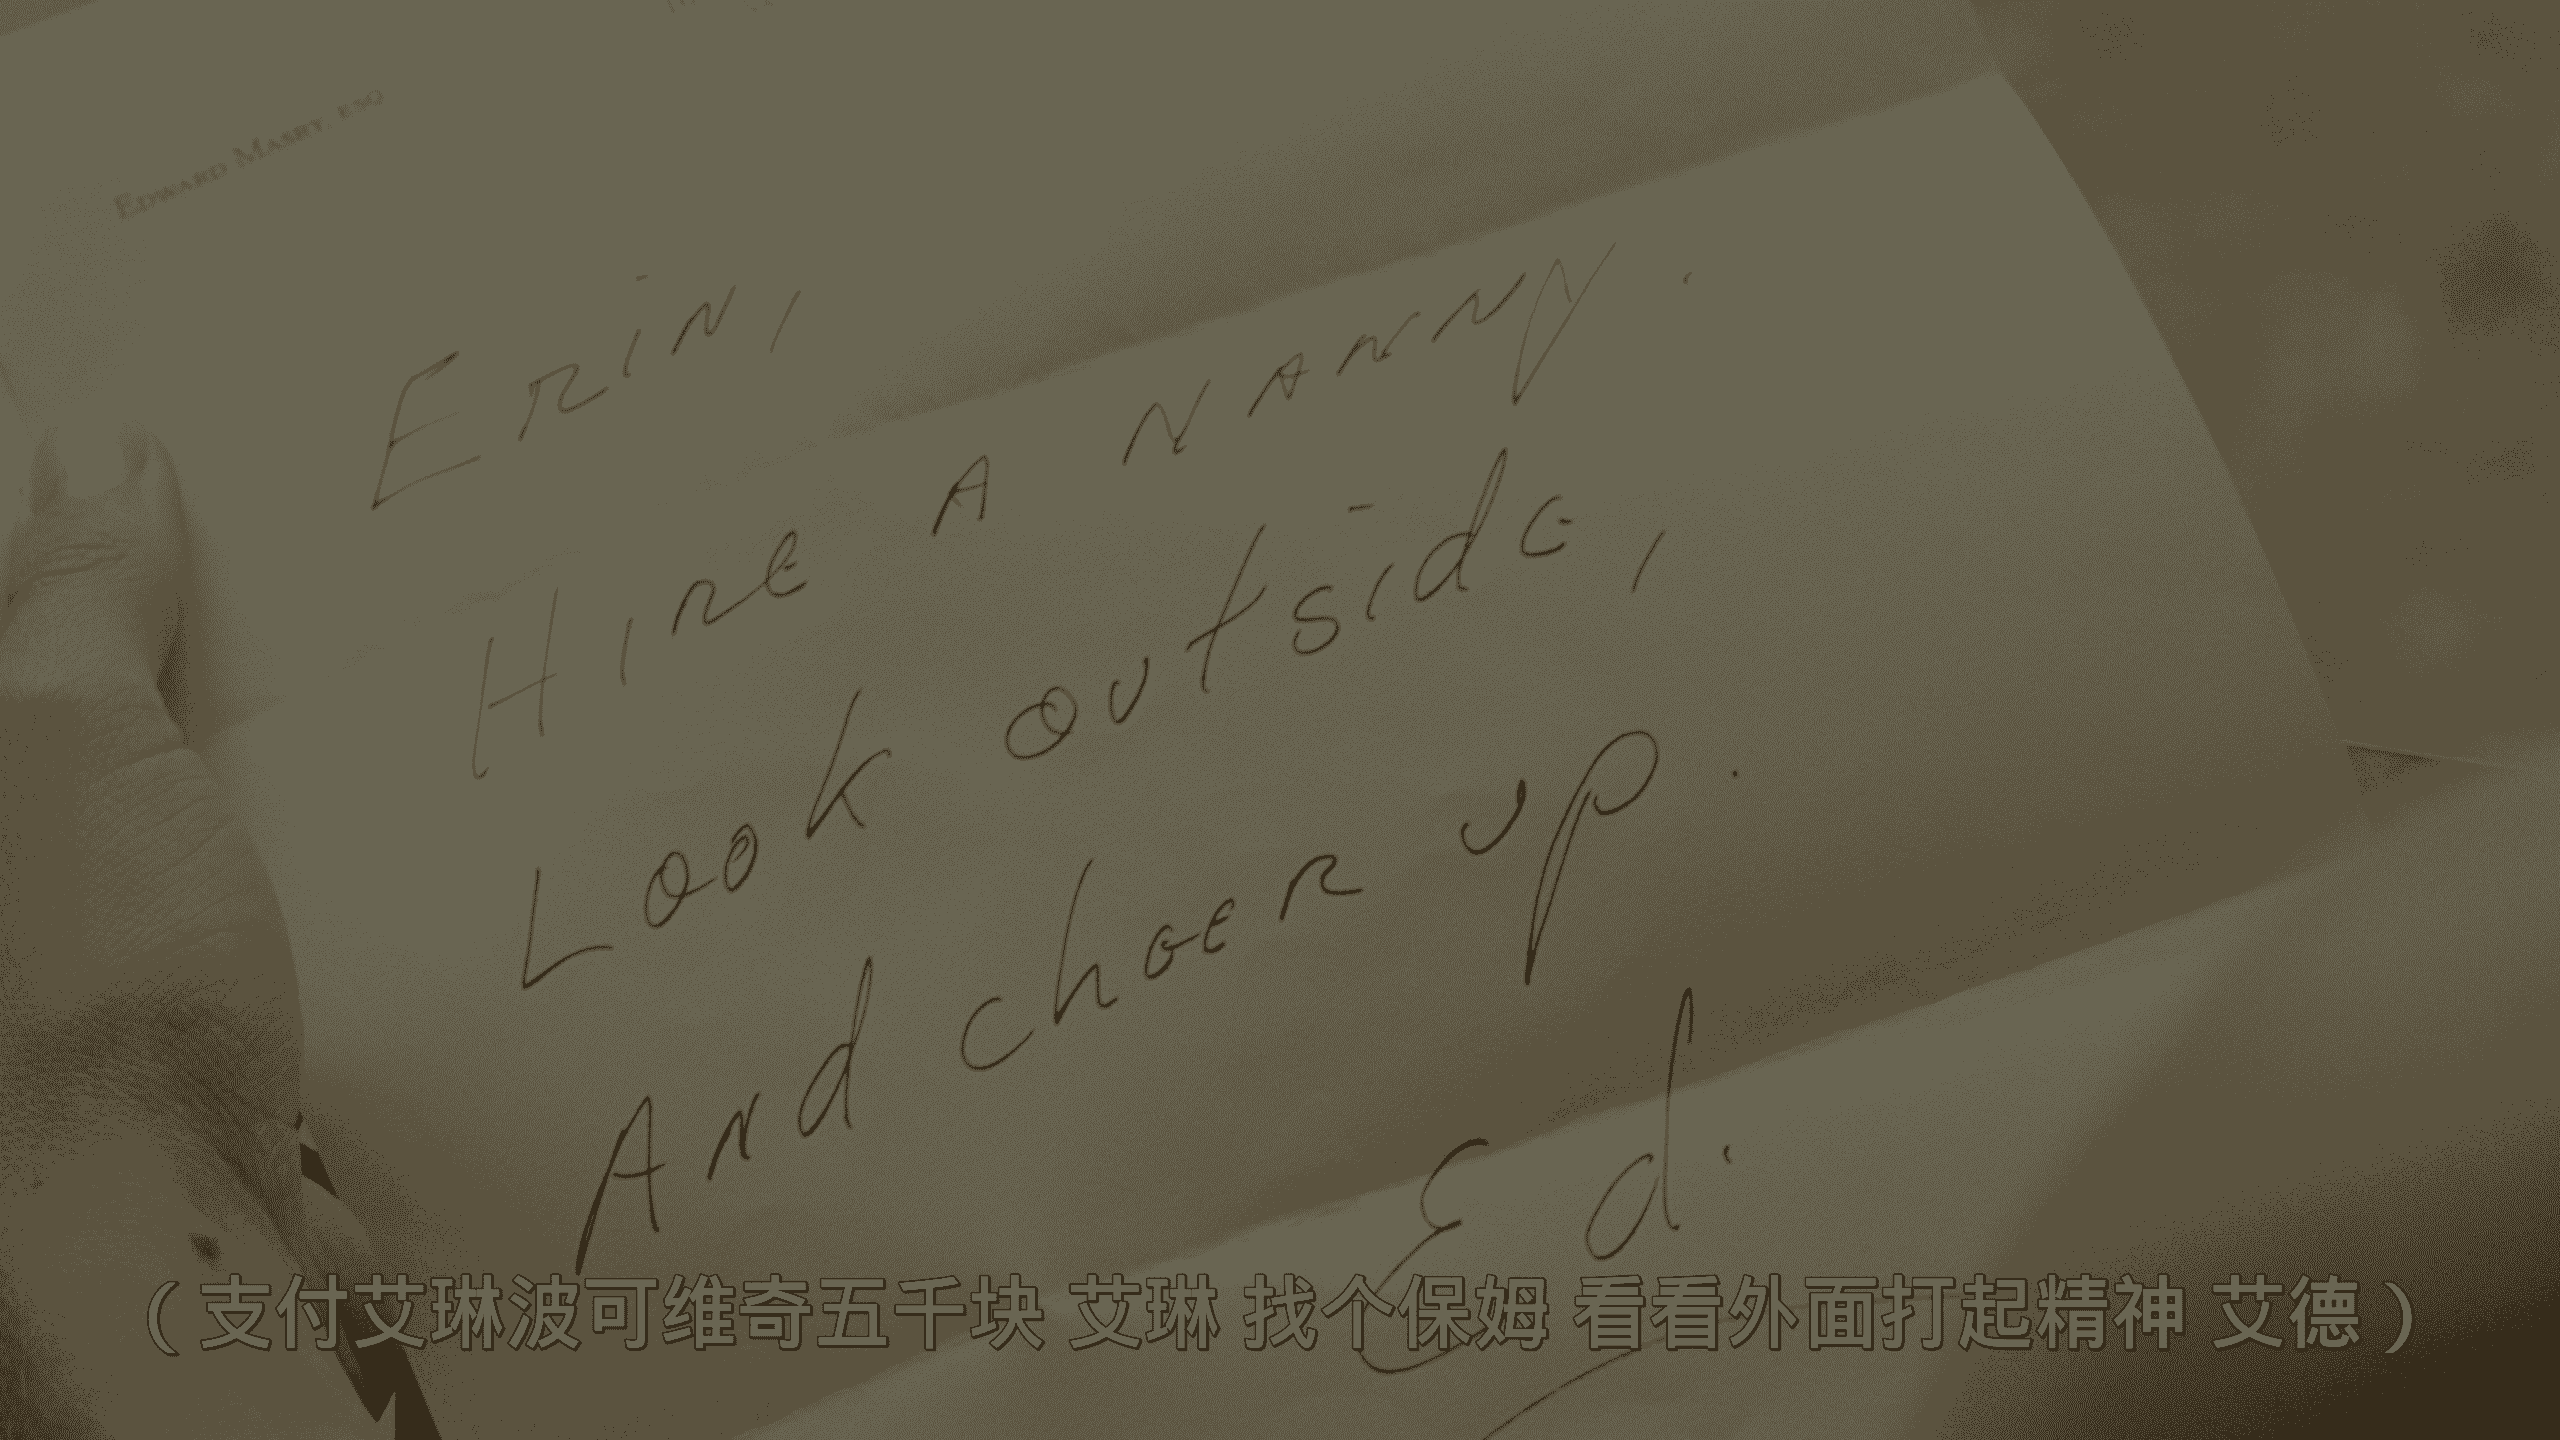 EDWARD MASRY, ESQ
Erin,
Hire A Nanny.
Look outside,
And cheer up.
Ed.
(支付艾琳波可维奇五千块 艾琳 找个保姆 看看外面打起精神 艾德)